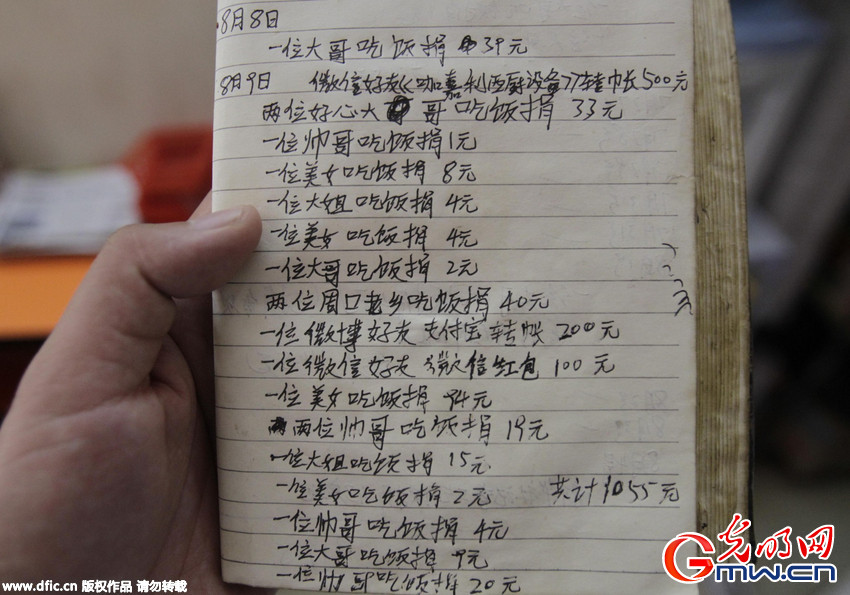 8月8日
一位大哥吃饭捐 39元
8月9日 微信好友《咖嘉利西厨设备》转帐500元
两位好心大哥吃饭捐 33元
一位帅哥吃饭捐1元
一位美女吃饭捐 8元
一位大姐吃饭捐 4元
一位美女吃饭捐 4元
一位大哥吃饭捐 2元
两位周口老乡吃饭捐 40元
一位微博好友支付宝转帐 200元
一位微信好友 微信红包 100元
一位美女吃饭捐 94元
两位帅哥吃饭捐 19元
一位大姐吃饭捐 15元
一位美女吃饭捐 2元 共计1055元
一位帅哥吃饭捐 4元
一位大哥吃饭捐 9元
一位帅哥吃饭捐 20元
光明网
GMW.cn
www.dfic.cn 版权作品 请勿转载